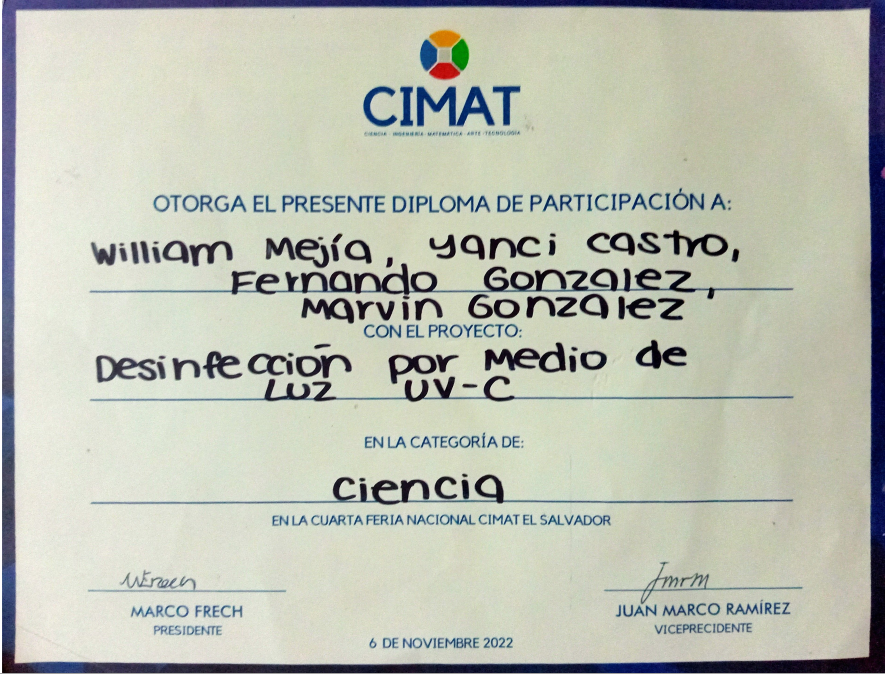 CIMAT
CIENCIA - INGENIERÍA - MATEMÁTICA - ARTE - TECNOLOGÍA
OTORGA EL PRESENTE DIPLOMA DE PARTICIPACIÓN A:
William Mejía, Yanci Castro,
Fernando Gonzalez,
Marvin Gonzalez
CON EL PROYECTO:
Desinfección por Medio de
Luz UV-C
EN LA CATEGORÍA DE:
Ciencia
EN LA CUARTA FERIA NACIONAL CIMAT EL SALVADOR
MARCO FRECH
PRESIDENTE
JUAN MARCO RAMÍREZ
VICEPRECIDENTE
6 DE NOVIEMBRE 2022